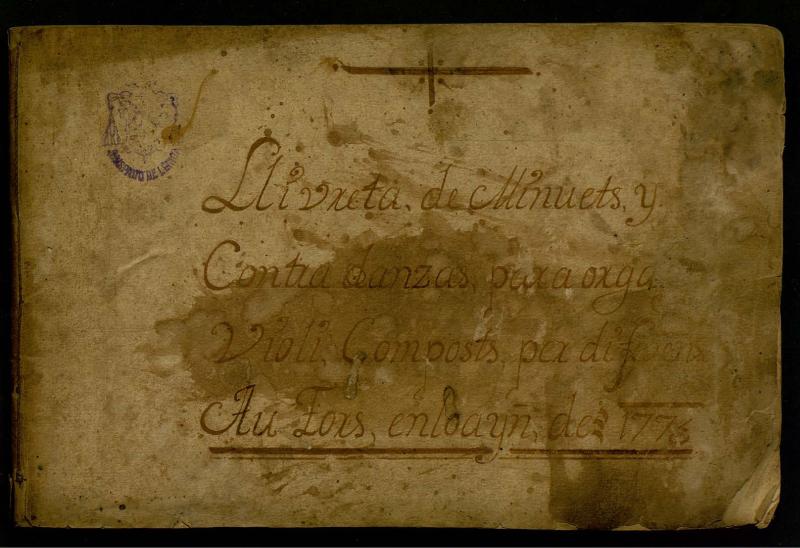 Llivreta, de Minuets, y
Contra danzas, para orga
Violi, Composts, per diferens
Au Tors, enloayñ, de 177